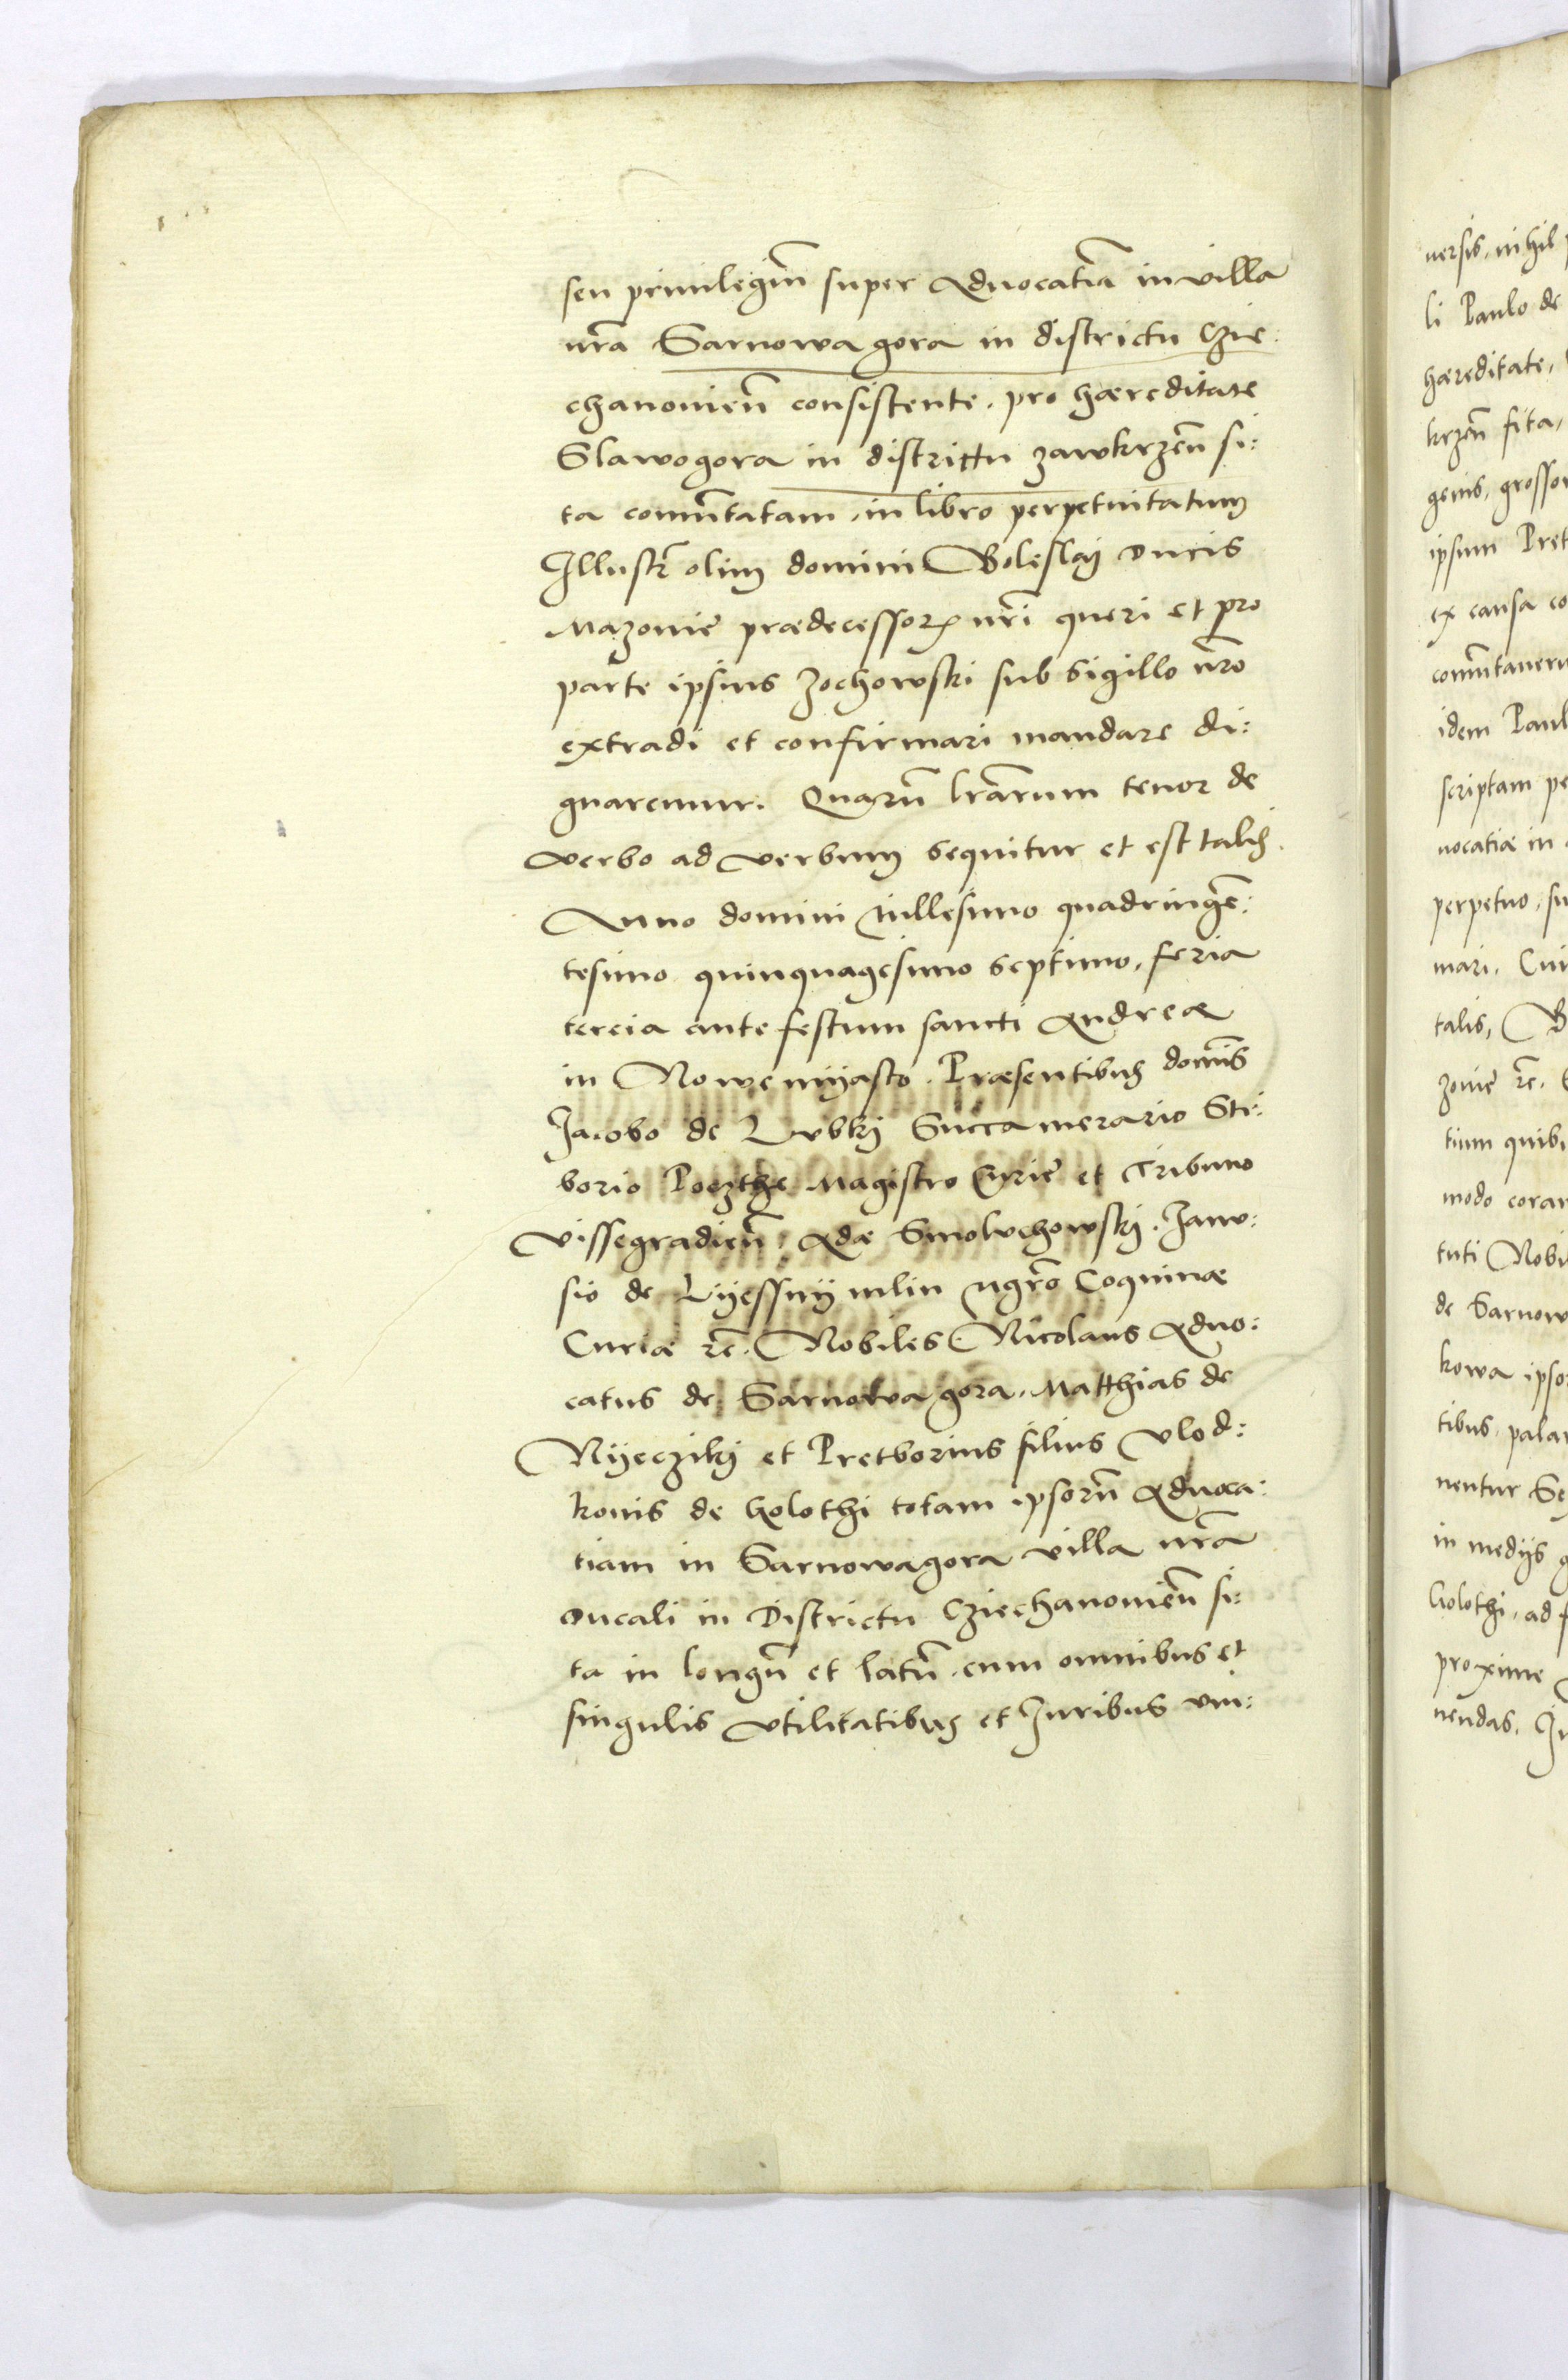 seu priuilegiũ super Aduocatiã in villa
nrã Sarnowagora in districtu Czie:
chanouieñ consistente, pro hæreditate
Slawogora in districtu zawkrzeñ si:
ta com̃utatam, in libro perpetuitatum
Illustr̃ olim domini Boleslaj Ducis
Mazouie prædecessor nr̃i queri et pro
parte ipsius Zochowski sub sigillo nr̃o
extradi et confirmari mandare di:
gnaremur. Quarũ lrãrum tenor de
verbo ad verbum sequitur et est talis.
Anno domini Millesimo quadringẽ:
tesimo quinquagesimo septimo, feria
tercia ante festum sancti Andreæ
in Nowemyasto. Præsentibus dominis
Jacobo de Lubky Succamerario Sti:
borio Poczthe Magistro Curie et Tribuno
Vissegradieñ, Adã Smolechowskj. Janu:
sio de Lyessny mlin mgr̃o Coquinæ
Curiæ rc̃. Nobiles Nicolaus Aduo:
catus de Sarnowagora, Matthias de
Nyeczikj et Pretborius filius Vlod:
konis de Golothi totam ipsorũ Aduoca:
tiam in Sarnowagora villa nrã
Ducali in Districtu Cziechanouieñ si:
ta in longũ et latũ, cum omnibus et
singulis vtilitatibus et Juribus vni:
uersis, nihil
li Paulo de
hæreditate,
krzeñ sita,
genis, grosso
ipsum Pret
ex causa co
com̃utaueru
idem Paul
scriptam pe
uocatiæ in
perpetuo, su
mari. Cui
talis, B
zouie rc̃.
tium quib
modo coram
tuti Nobi
de Sarnow
kowa ipso
tibus, pala
nentur Se
in medijs g
Golothi, ad
proxime
nendas. In